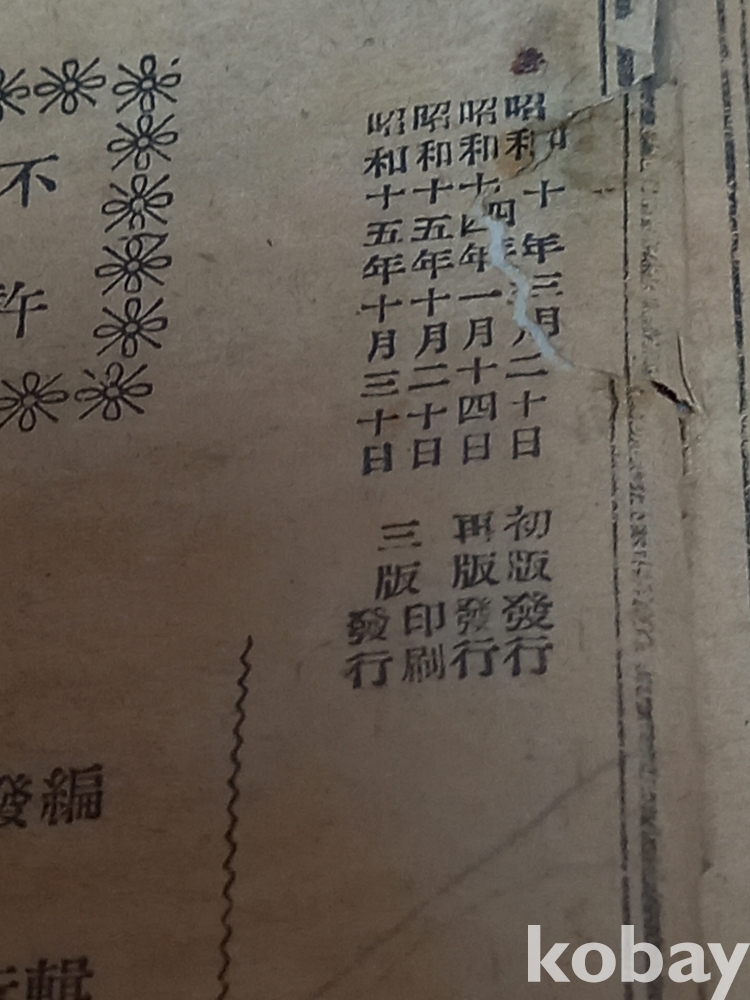 昭和十年三月二十日 初版發行
昭和十四年一月十四日 再版發行
昭和十五年十月二十日 三版印刷
昭和十五年十月三十日 發行
不
編
輯
kobay